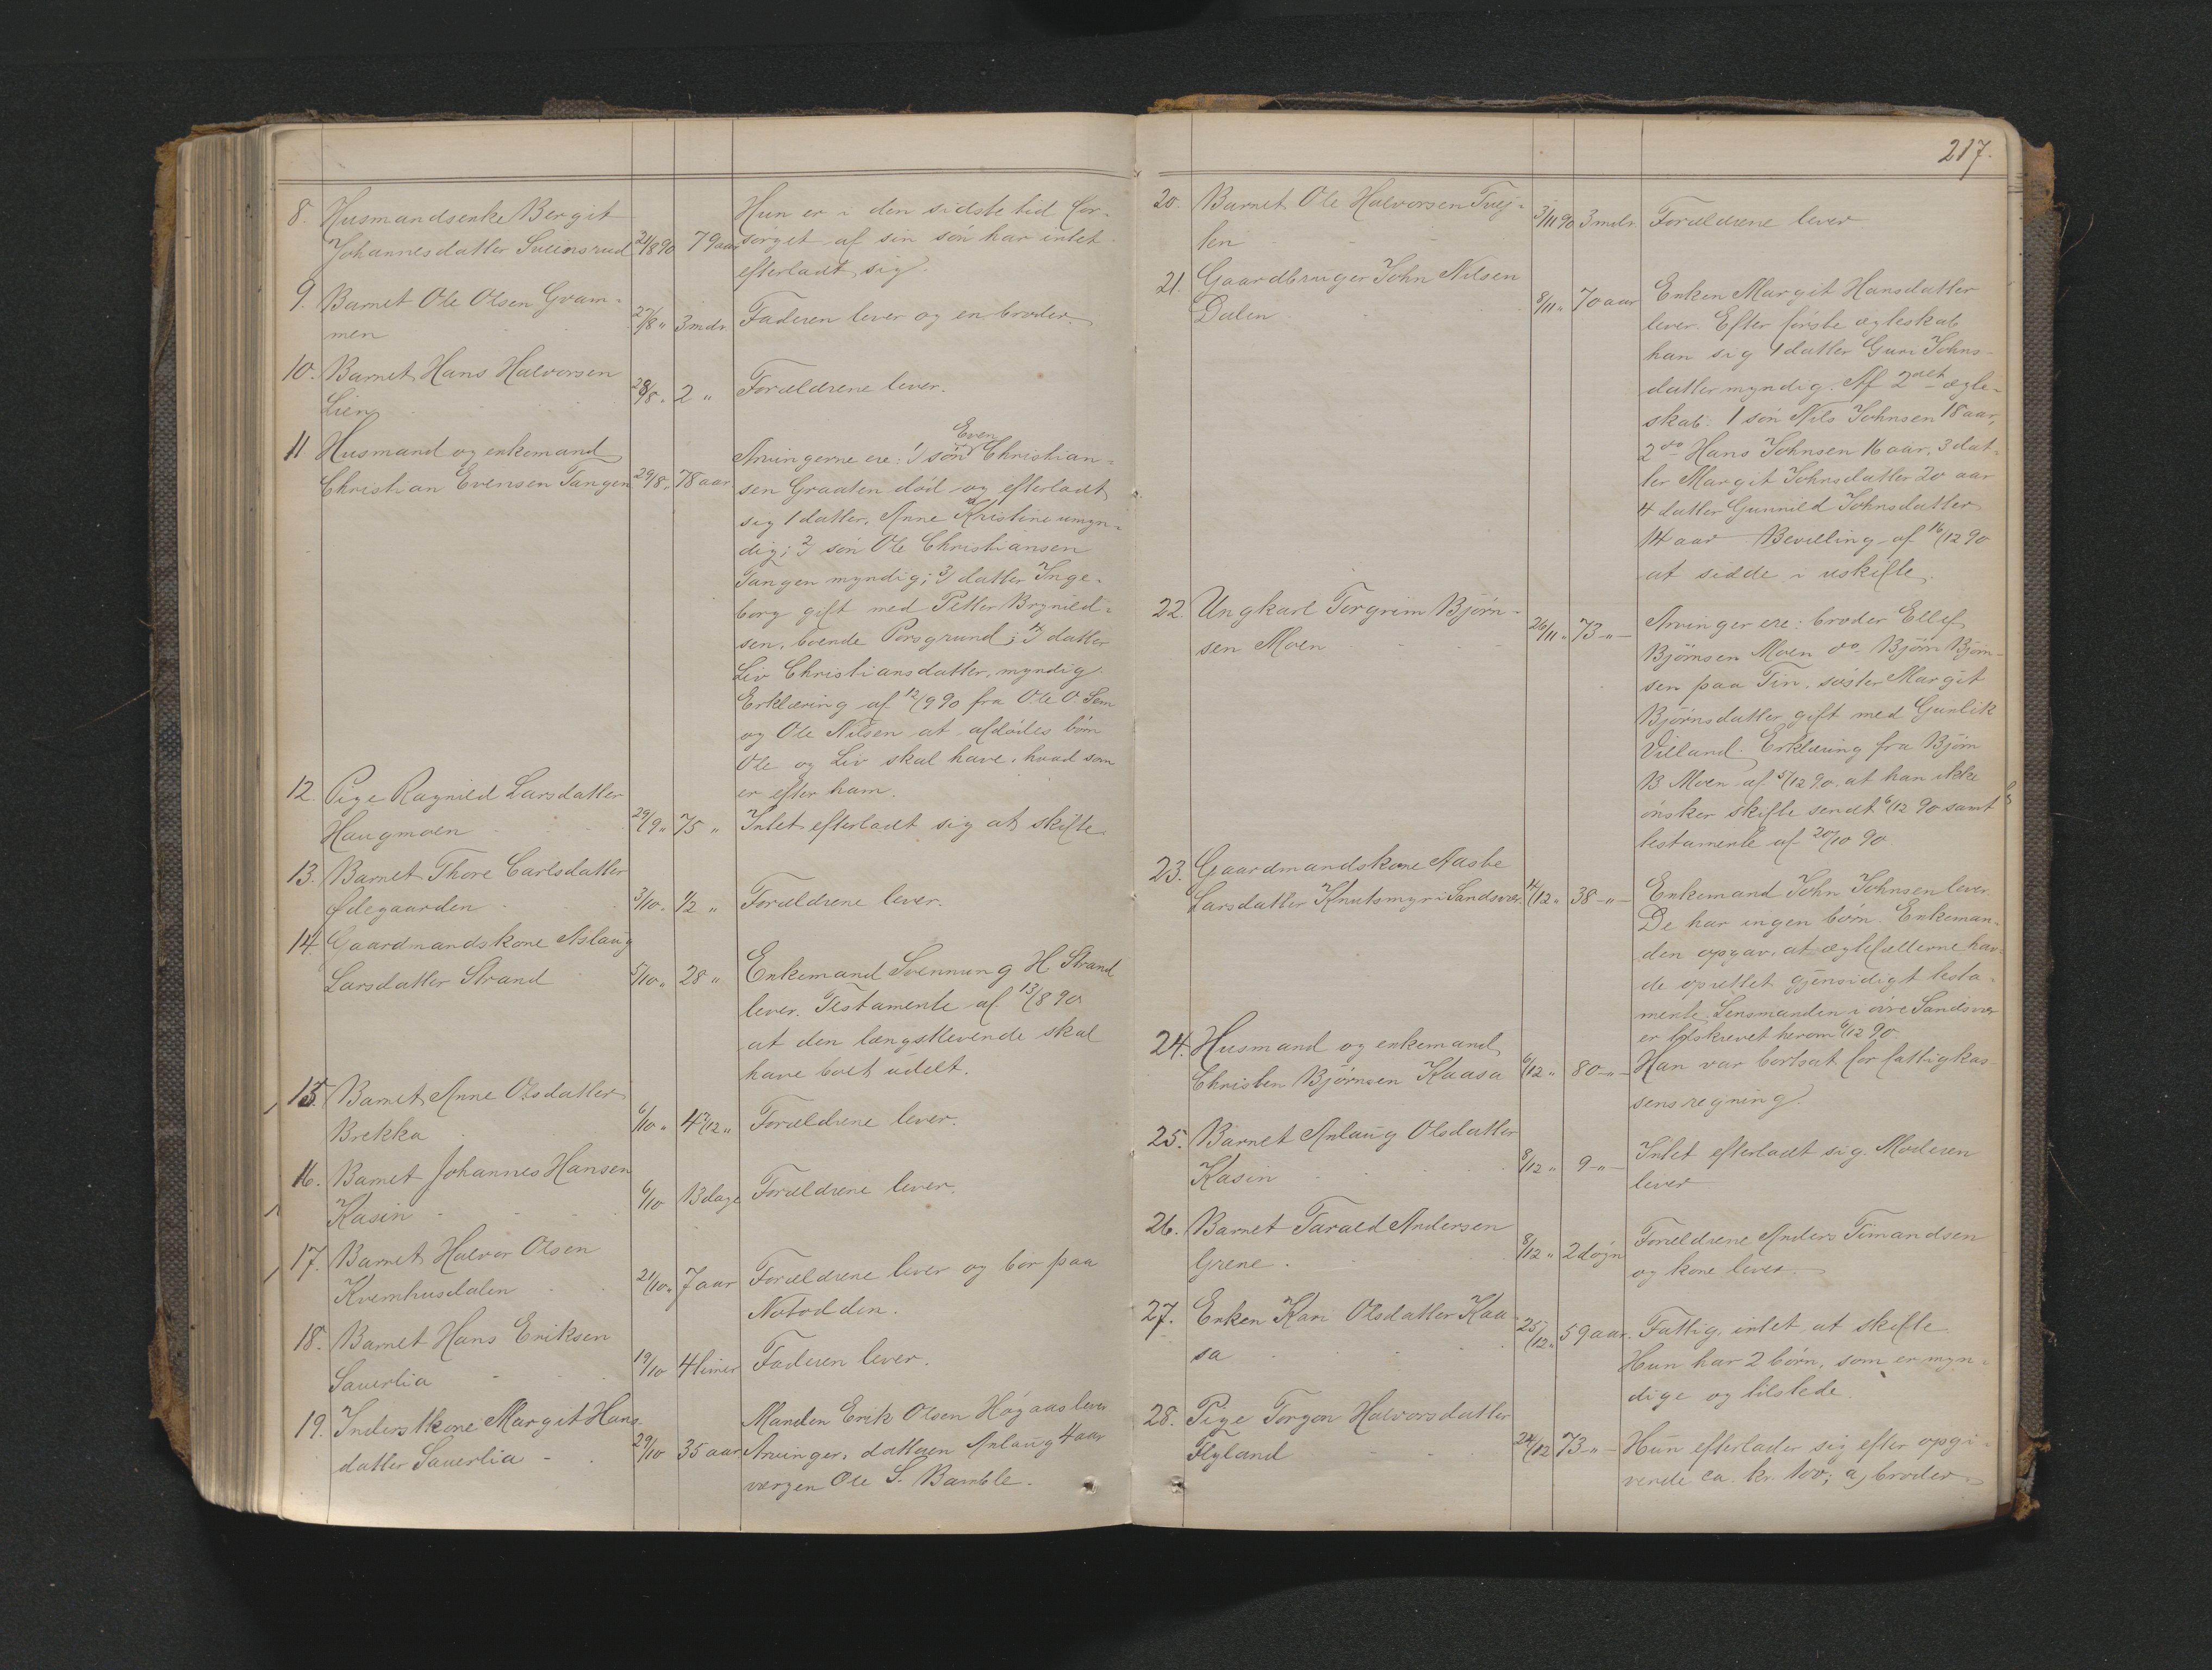 8. Husmandsenke Bergit
Johannesdatter Sveinsrud 24/8 90 79 aar
Hun er i den sidste tid for-
sørget af sin søn har intet
efterladt sig.
9. Barnet Ole Olsen Gvam-
men 27/8 " 3 mdr. Faderen lever og en broder.
10. Barnet Hans Halvorsen
Lien 28/8 " 2 " Forældrene lever.
11 Husmand og enkemand
Christian Evensen Tangen 29/8 " 78 aar
Even
Arvingerne ere: 1) søn Christian-
sen Graaten død og efterladt
sig 1 datter, Anne Kristine umyn-
dig; 2) søn Ole Christiansen
Tangen myndig; 3) datter Inge-
borg gift med Petter Brynild-
sen, boende Porsgrund; 4) datter
Liv Christiansdatter, myndig.
Erklæring af 12/9 90 fra Ole O. Sem
og Ole Nilsen at afdødes børn
Ole og Liv skal have, hvad som
er efter ham.
12. Pige Ragnild Larsdatter
Haugmoen 29/9 " 75 " Intet efterladt sig at skifte.
13. Barnet Thore Carlsdatter
Ødegaarden 3/10 " 1/2 " Forældrene lever.
14. Gaardmandskone Aslaug
Larsdatter Strand 5/10 " 28 " Enkemand Svennung H. Strand
lever. Testamente af 13/8 90
at den længstlevende skal
have boet udelt.
15. Barnet Anne Olsdatter
Brekka 6/10 " 4 7/12 " Forældrene lever.
16. Barnet Johannes Hansen
Kasin 6/10 13 dage Forældrene lever.
17. Barnet Halvor Olsen
Kvernhusdalen 21/10 " 7 aar Forældrene lever og bor paa
Notodden.
18. Barnet Hans Eriksen
Sauerlia 19/10 4 timer Faderen lever.
19. Inderstkone Margit Hans-
datter Sauerlia 29/10 35 aar
Manden Erik Olsen Høgaas lever
Arvinger, datteren Anlaug 4 aar
værgen Ole S. Bamble.
217.
20. Barnet Ole Halvorsen Tvej-
ten 3/11 90 3 mdr. Forældrene lever.
21. Gaardbruger John Nilsen
Dalen 8/11 " 70 aar Enken Margit Hansdatter
lever. Efter første ægteskab
han sig 1 datter Guri Johns-
datter myndig. Af 2det ægte-
skab: 1 søn Nils Johnsen 18 aar,
2 do Hans Johnsen 16 aar, 3 dat-
ter Margit Johnsdatter 20 aar
4 datter Gunnild Johnsdatter
14 aar Bevilling af 16/12 90
at sidde i uskifte.
22. Ungkarl Torgrim Bjørn-
sen Moen 26/11 " 73 - " - Arvinger ere: broder Ellef
Bjørnsen Moen do Bjørn Bjørn-
sen paa Tin, søster Margit
Bjørnsdatter gift med Gunlik
Villand. Erklæring fra Bjørn
B Moen af 5/12 90 at han ikke
ønsker skifte sendt 6/12 90 samt
testamente af 20/10 90.
23. Gaardmandskone Aasbe
Larsdatter Knutsmyr i Sandsvær 4/12 " 38 - " - Enkemand John Johnsen lever
De har ingen børn. Enkeman-
den opgav, at ægtefællerne hav-
de oprettet gjensidigt testa-
mente. Lensmanden i øvre Sandsvær
er tilskrevet herom 6/12 90.
24. Husmand og enkemand
Christen Bjørnsen Kaasa 6/12 " 80 - " - Han var bortsat for fattigkas-
sens regning.
25. Barnet Anlaug Olsdatter
Kasin 8/12 " 9 - " - Intet efterladt sig. Moderen
lever
26. Barnet Tarald Andersen
Grene 8/12 " 2 døgn Forældrene Anders Timandsen
og kone lever.
27. Enken Kari Olsdatter Kaa-
sa 25/12 " 59 aar. Fattig, intet at skifte.
Hun har 2 børn, som er myn-
dige og tilstede.
28. Pige Torgon Halvorsdatter
Flyland 24/12 73 - " - Hun efterlader sig efter opgi-
vende ca. kr. 100; a) broder